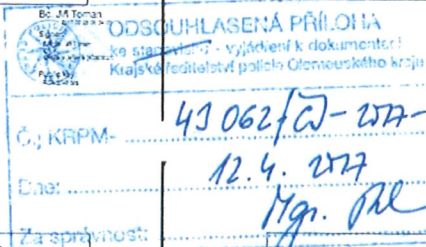 Bc. Jiří Toman
ODSOUHLASENÁ PŘÍLOHA
ke stanovisku - vyjádření k dokumentaci
Krajské ředitelství policie Olomouckého kraje
Č.j. KRPM- 43062/ČJ-2017-
Dne: 12.4.2017
Mgr.
Za správnost: